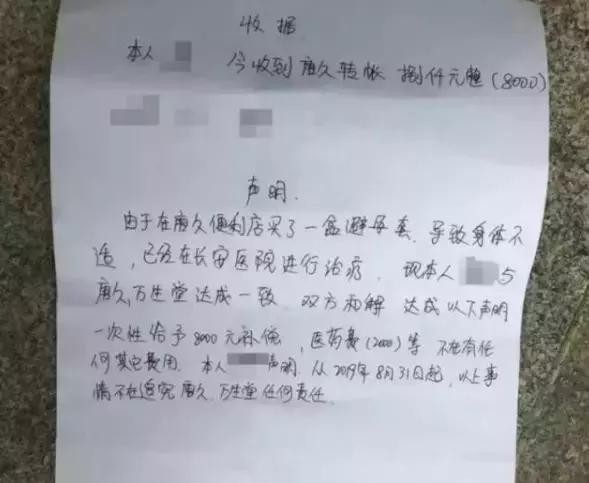 收据
本人 今收到唐久转帐 捌仟元整(8000)
声明.
由于在唐久便利店买了一盒避孕套.导致身体不
适,已经在长安医院进行治疗.现本人 与
唐久,万生堂达成一致.双方和解 达成以下声明
一次性给予8000元补偿,医药费(2000)等 不在有任
何其它费用.本人 声明.从2019年8月31日起,以上事
情不在追究唐久.万生堂任何责任.